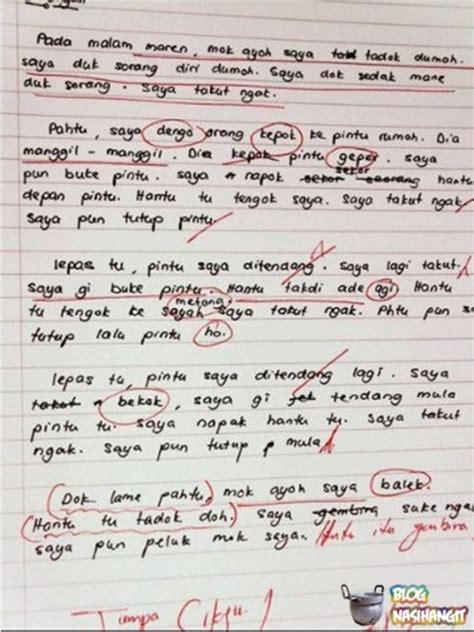 Pada malam maren, mok ayoh saya tadok dumoh.
saya duk sorang diri dumoh. Saya dok sedak mane
duk sorang. Saya takut ngak.
Pahtu, saya dengo orang kepok ke pintu rumoh. Dia
manggil - manggil. Dia kepok pintu geper. saya
pun buke pintu. saya napok sekor hantu
depan pintu. Hantu tu tengok saya. Saya takut ngak
Saya pun tutup pintu
lepas tu, pintu saya ditendang. saya lagi takut.
Saya gi buke pintu. Hantu takdi ade agi. Hantu
metang
tu tengok ke saya takut ngak. Phtu pun s
tutup lalu pintu ho.
lepas tu, pintu saya ditendang lagi. Saya
bekak, saya gi tendang mula
pintu tu. saya napak hantu tu. Saya takut
ngak. Saya pun tutup p mula
Dok lame pahtu, mok ayoh saya balek.
Hantu tu tadok doh. saya gembira suke nga
saya pun peluk mok saya. Hantu gembira
BLOG
NASIHANGIT